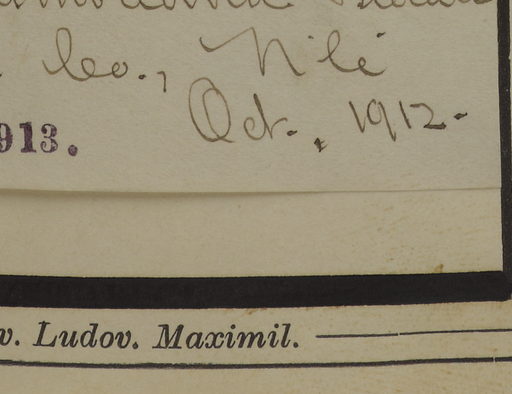 Co., N'le
Oct., 1912.
913.
v. Ludov. Maximil.